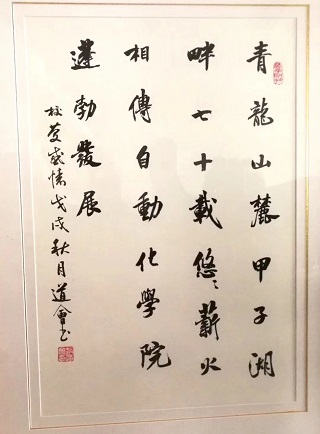 青龍山麓甲子湖
畔七十載悠〻薪火
相傳自動化學院
蓬勃發展
校慶感懷戊戌秋月道會书